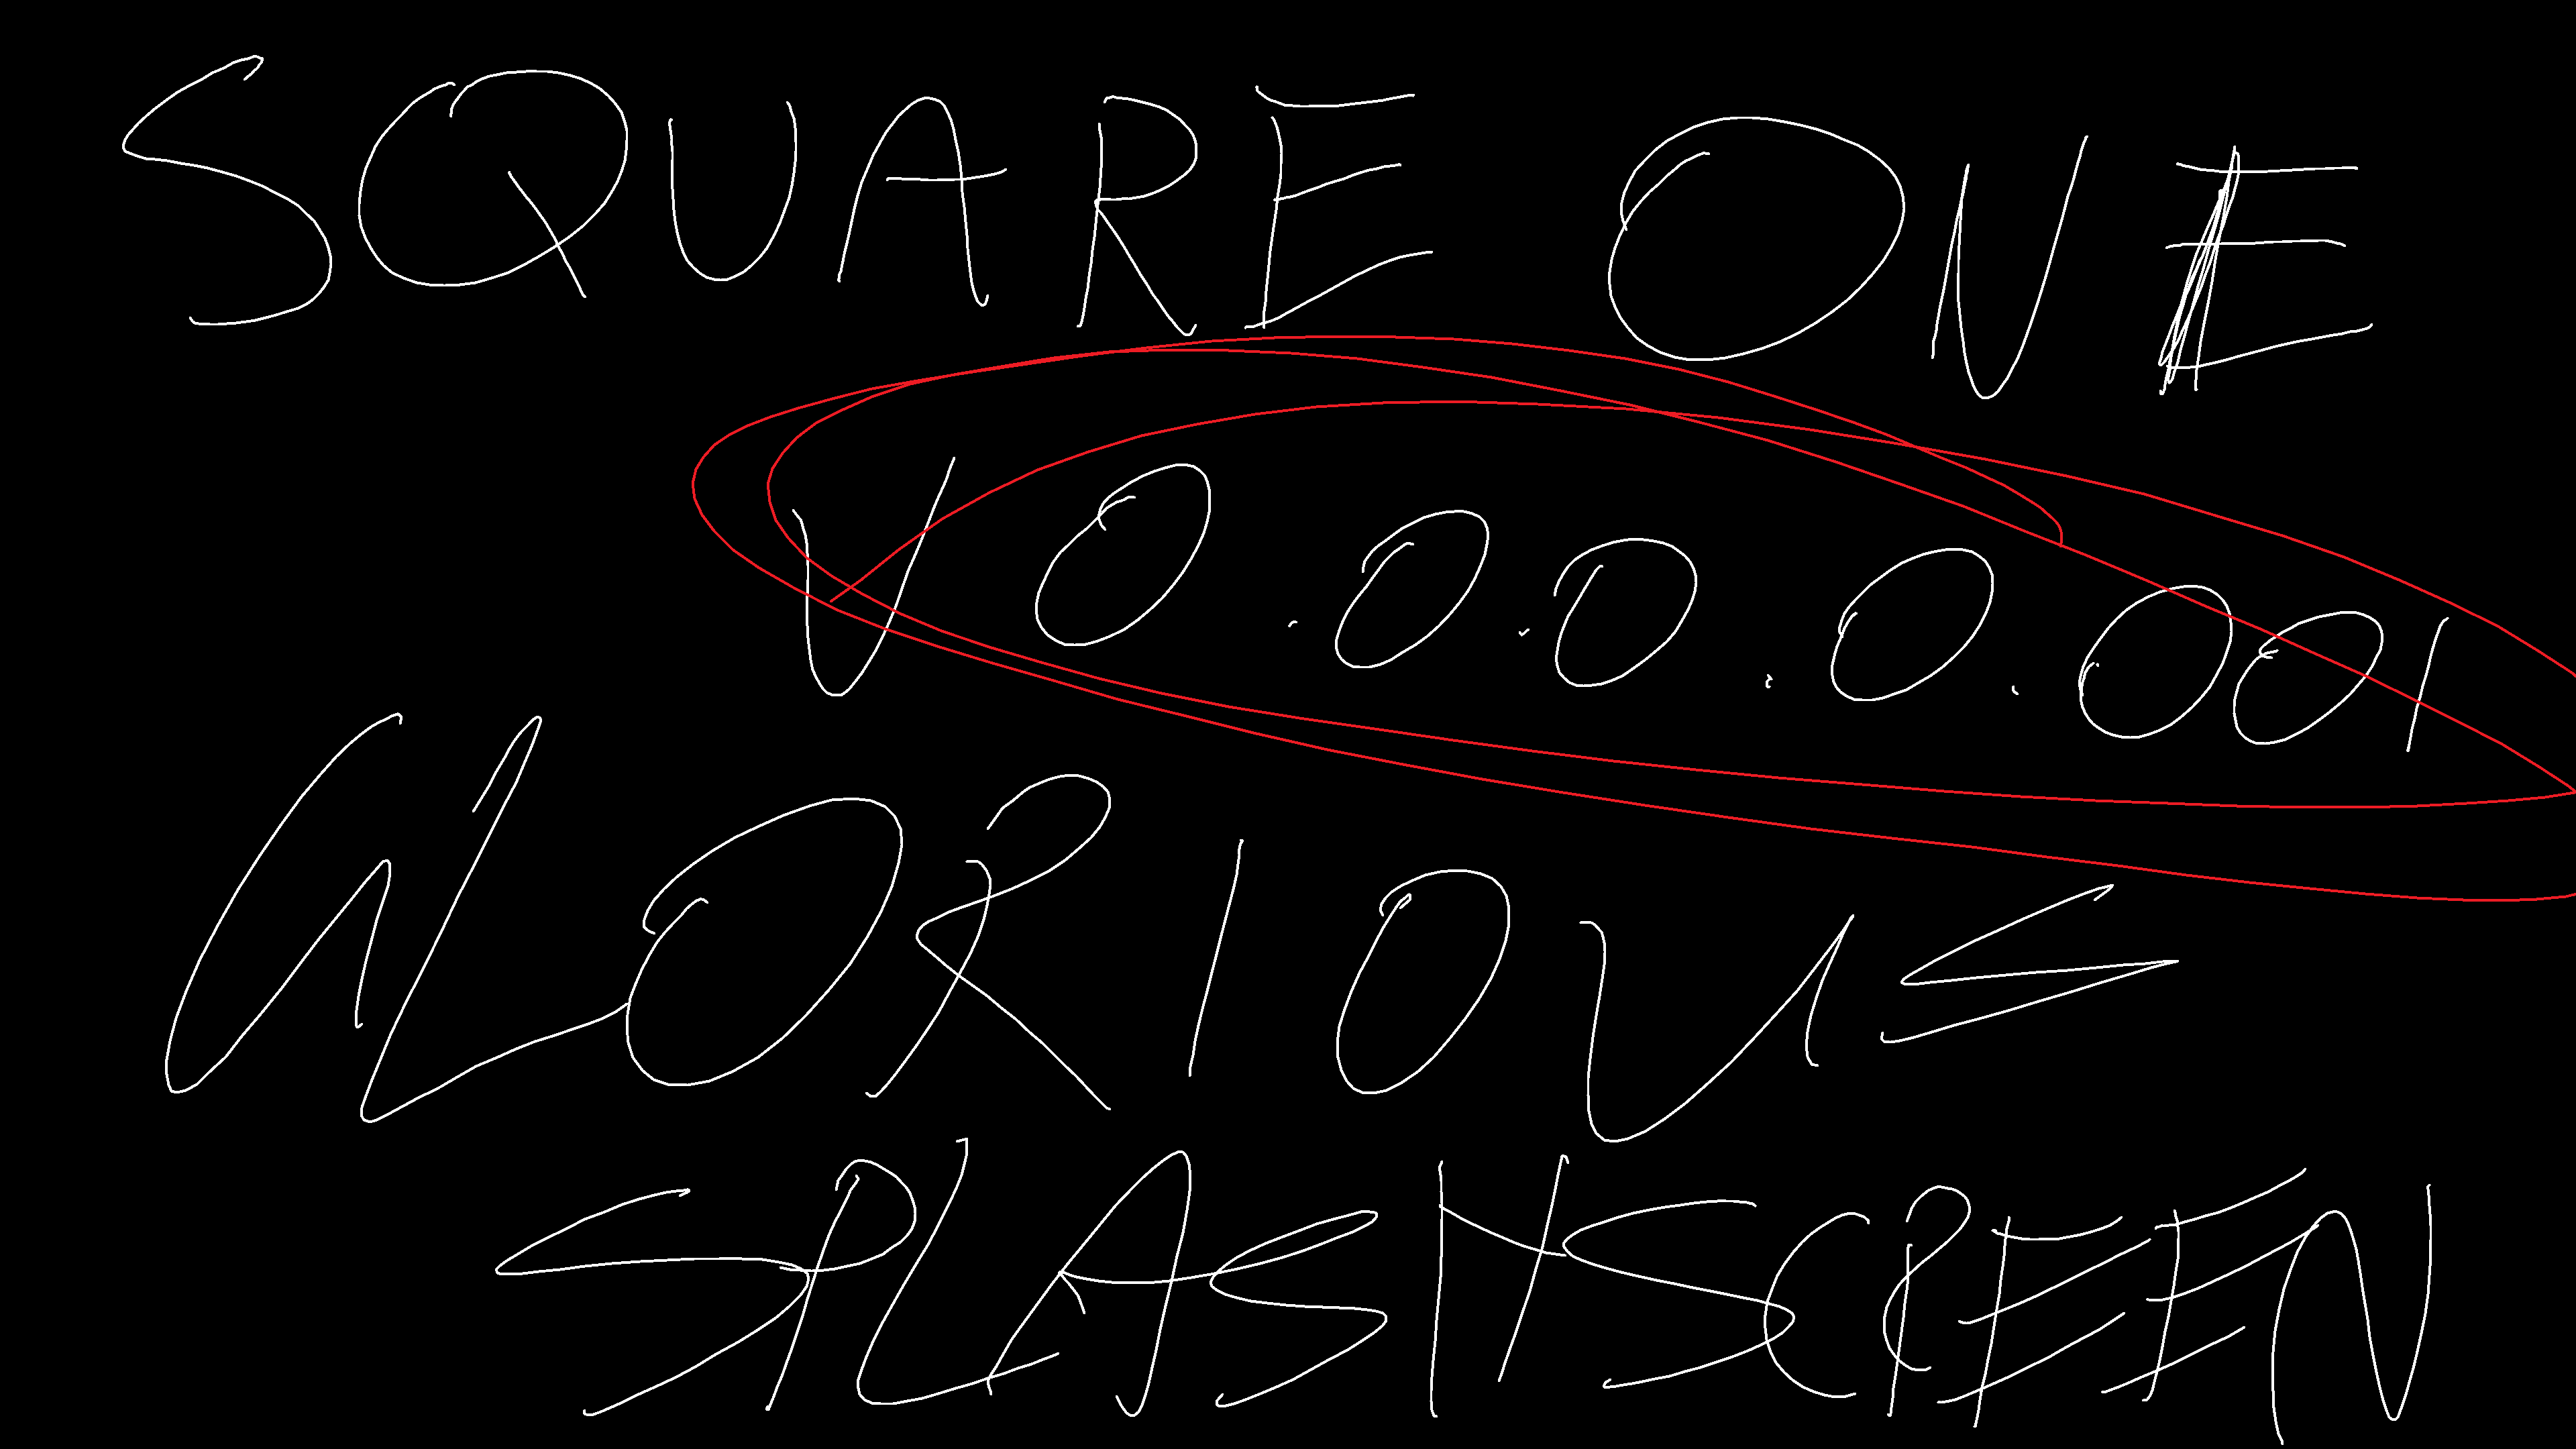 SQUARE ONE
V0.0.0.0.001
GLORIOUS
SPLASHSCREEN